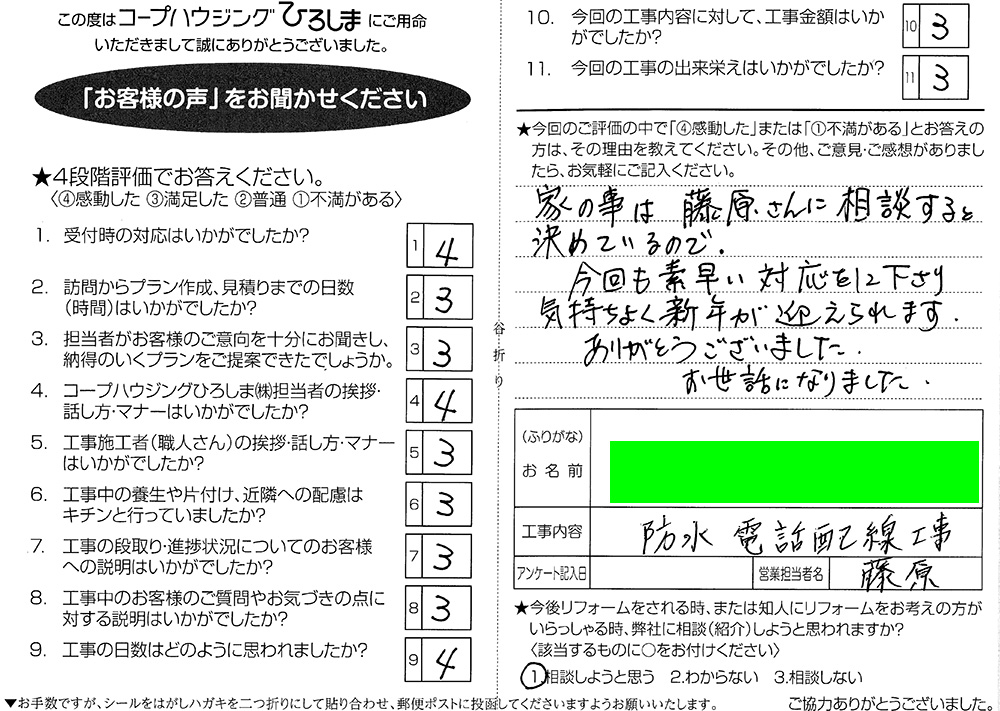 この度はコープハウジングひろしまにご用命
いただきまして誠にありがとうございました。
「お客様の声」をお聞かせください
★4段階評価でお答えください。
〈④感動した ③満足した ②普通 ①不満がある〉
1. 受付時の対応はいかがでしたか?
1 4
2. 訪問からプラン作成、見積りまでの日数
(時間)はいかがでしたか?
2 3
3. 担当者がお客様のご意向を十分にお聞きし、
納得のいくプランをご提案できたでしょうか。
3 3
4. コープハウジングひろしま㈱担当者の挨拶・
話し方・マナーはいかがでしたか?
4 4
5. 工事施工者(職人さん)の挨拶・話し方・マナー
はいかがでしたか?
5 3
6. 工事中の養生や片付け、近隣への配慮は
キチンと行っていましたか?
6 3
7. 工事の段取り・進捗状況についてのお客様
への説明はいかがでしたか?
7 3
8. 工事中のお客様のご質問やお気づきの点に
対する説明はいかがでしたか?
8 3
9. 工事の日数はどのように思われましたか?
9 4
谷折り
10. 今回の工事内容に対して、工事金額はいか
がでしたか?
10 3
11. 今回の工事の出来栄えはいかがでしたか?
11 3
★今回のご評価の中で「④感動した」または「①不満がある」とお答えの
方は、その理由を教えてください。その他、ご意見・ご感想がありまし
たら、お気軽にご記入ください。
家の事は 藤原さんに相談すると
決めているので.
今回も素早い対応を下さり
気持ちよく新年が迎えられます.
ありがとうございました.
お世話になりました.
(ふりがな)
お名前
工事内容 防水 電話配線工事
アンケート記入日 営業担当者名 藤原
★今後リフォームをされる時、または知人にリフォームをお考えの方が
いらっしゃる時、弊社に相談(紹介)しようと思われますか?
〈該当するものに○をお付けください〉
1.相談しようと思う 2.わからない 3.相談しない
▼お手数ですが、シールをはがしハガキを二つ折りにして貼り合わせ、郵便ポストに投函してくださいますようお願いいたします。
ご協力ありがとうございました。